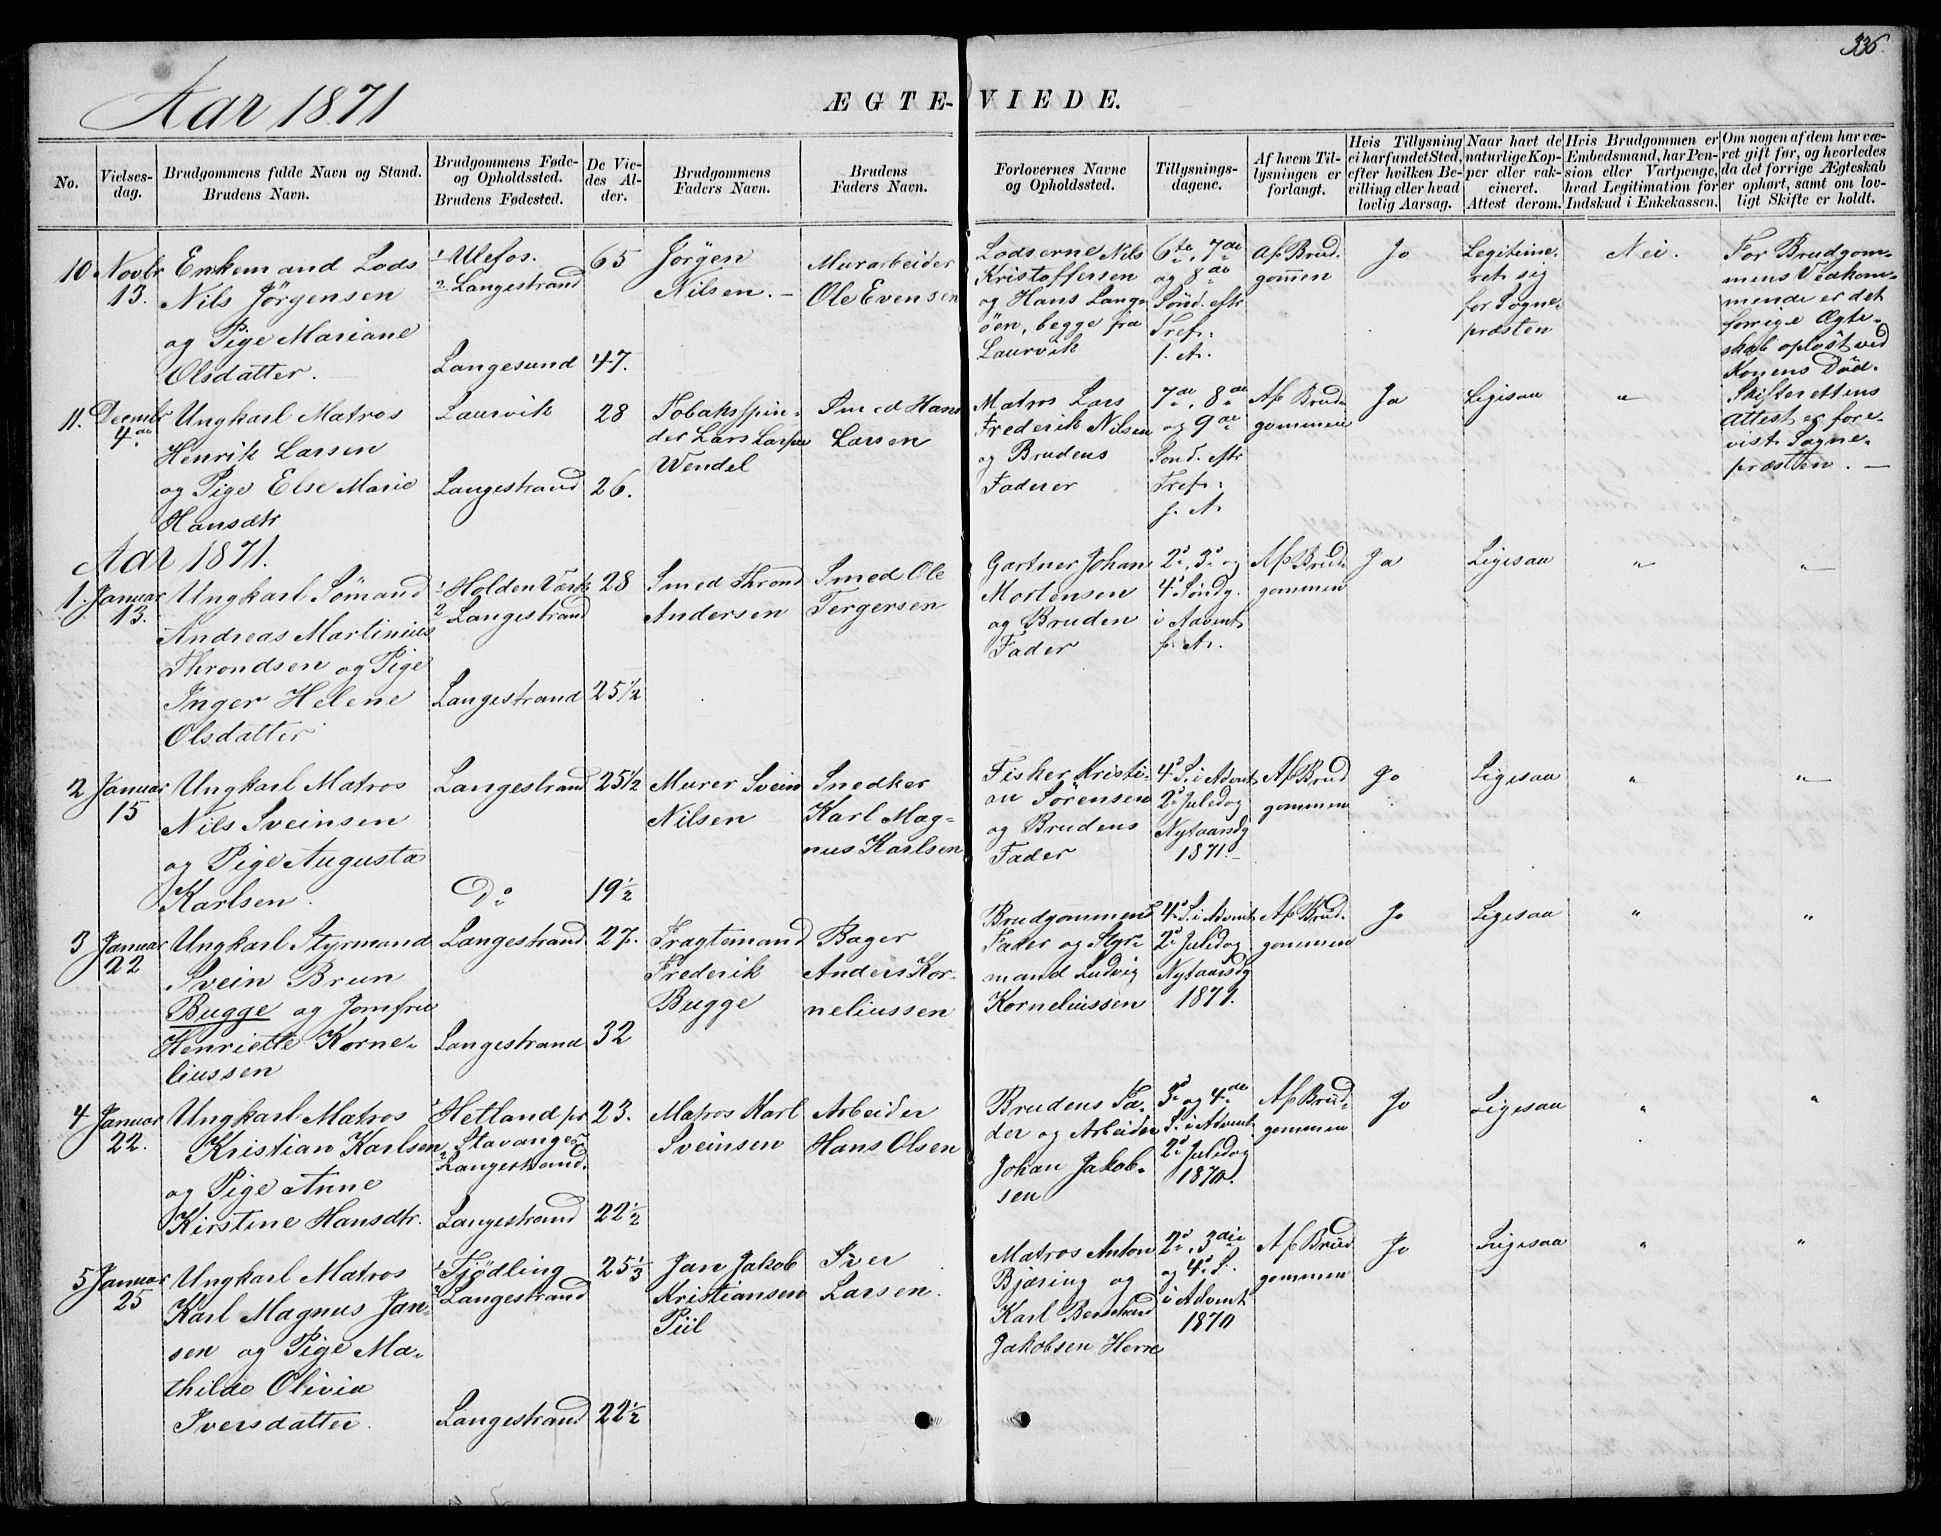 336.
Aar 1871
ÆGTE-VIEDE.
No.
Vielses-
dag.
Brudgommens fulde Navn og Stand.
Brudens Navn.
Brudgommens Føde-
og Opholdssted.
Brudens Fødested.
De Vie-
des Al-
der.
Brudgommens
Faders Navn.
Brudens
Faders Navn.
Forlovernes Navne
og Opholdssted.
Tillysnings-
dagene.
Af hvem Til-
lysningen er
forlangt.
Hvis Tillysning
ei har fundet Sted,
efter hvilken Be-
villing eller hvad
lovlig Aarsag.
Naar havt de
naturlige Kop-
per eller vak-
cineret.
Attest derom.
Hvis Brudgommen er
Embedsmand, har Pen-
sion eller Vartpenge,
hvad Legitimation for
Indskud i Enkekassen.
Om nogen af dem har væ-
ret gift før, og hvorledes
da det forrige Ægteskab
er ophørt, samt om lov-
ligt Skifte er holdt.
10
Novbr
13.
Enkemand Lods
Nils Jörgensen
og Pige Mariane
Olsdatter.
1. Ulefos.
2. Langestrand
Langesund
65
47.
Jörgen
Nilsen. —
Murarbeider
Ole Evensen
Lodserne Nils
Kristoffersen
og Hans Lange
öen, begge fra
Laurvik
6te, 7de
og 8de
Sönd. eftr
Tref.
f. A.
Af Brud-
gommen
Jo
Legitime-
ret sig
for Sogne-
præsten
Nei.
For Brudgom-
mens Vedkom-
mende er det
forrige Ægte-
skab oplöst ved
Konens Död.
Skifterettens
Attest er fore-
vist Sogne-
præsten. —
11.
Decembr
4de
Ungkarl Matros
Henrik Larsen
og Pige Else Marie
Hansdtr
Laurvik
Langestrand
28
26.
Tobaksspin-
der Lars Larsen
Wendel
Smed Hans
Larsen
Matros Lars
Frederik Nilsen
og Brudens
Fader
7de, 8de
og 9de
Sönd. eftr
Tref.
f. A.
Af Brud-
gommen
Ja
Ligesaa
"
Aar 1871.
1.
Januar
13.
Ungkarl Sömand
Andreas Martinius
Throndsen og Pige
Inger Helene
Olsdatter
1. Holden Værk
2. Langestrand
Langestrand
28
25 1/2
Smed Thrond
Andersen
Smed Ole
Tergersen
Gartner Johan
Mortensen
og Bruden
Fader
2d, 3d og
4d Söndg.
i Advent
f. A.
Af Brud-
gommen
Ja
Ligesaa
"
"
2
Januar
15
Ungkarl Matros
Nils Sveinsen
og Pige Augusta
Karlsen.
Langestrand
Do
25 1/2
19 1/2
Murer Svein
Nilsen
Snedker
Karl Mag-
nus Karlsen
Fisker Kristi-
an Sörensen
og Brudens
Fader
4d S. i Advent
2d Juledag
Nytaarsdg
1871. —
Af Brud
gommen
Jo
Ligesaa
"
"
3
Januar
22
Ungkarl Styrmand
Svein Brun
Bugge og Jomfru
Henriette Korne-
liussen
Langestrand
Langestrand
27.
32
Fragtemand
Frederik
Bugge
Bager
Anders Kor-
neliussen
Brudgommens
Fader og Styr-
mand Ludvig
Korneliussen
4d S. i Advent
2d Juledag
Nytaarsdg
1871.
Af Brud-
gommen
Jo
Ligesaa
"
"
4
Januar
22.
Ungkarl Matros
Kristian Karlsen
og Pige Anne
Kirstine Hansdtr.
1. Hetland pr
Stavanger
2. Langestrand.
Langestrand
23.
22 1/2
Matros Karl
Sveinsen
Arbeider
Hans Olsen
Brudens Fa-
der og Arbeider
Johan Jakob-
sen
3d og 4de
S. i Advent
2d Juledag
1870.
Af Brud-
gommen
Jo
Ligesaa
"
"
5
Januar
25
Ungkarl Matros
Karl Magnus Jan-
sen og Pige Ma-
thilde Olivia
Iversdatter.
1. Tjödling
2. Langestrand
Langestrand
25 1/3
22 1/2
Jan Jakob
Kristiansen
Piil
Iver
Larsen.
Matros Anton
Bjæring og
Karl Bernhard
Jakobsen Herre
2d, 3die
og 4d S.
i Advent
1870
Af Brud
gommen
Jo
Ligesaa
"
"